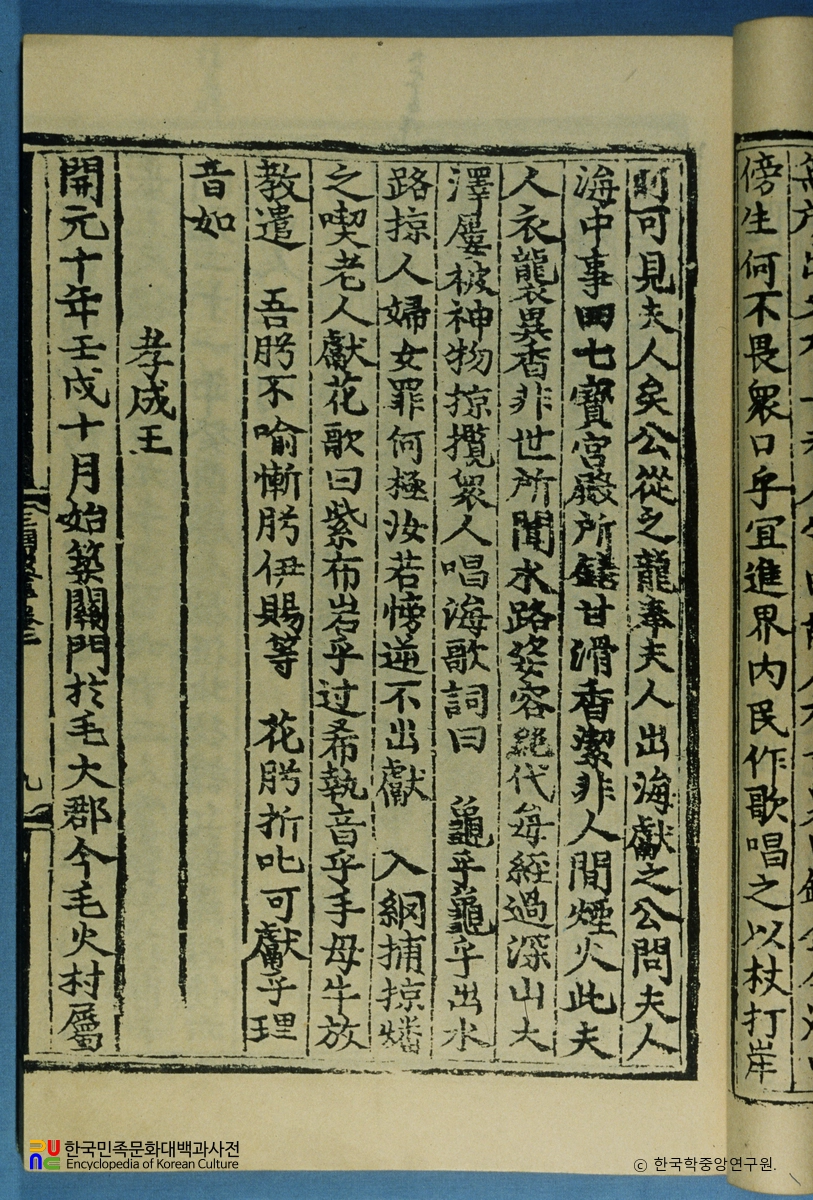 傍生何不畏衆口乎宜進界內民作歌唱之以杖打岸
則可見夫人矣公從之龍奉夫人出海獻之公問夫人
海中事曰七寶宮殿所饍甘滑香潔非人間煙火此夫
人衣襲異香非世所聞水路姿容絶代每經過深山大
澤屢被神物掠攬衆人唱海歌詞曰 龜乎龜乎出水
路掠人婦女罪何極汝若愶逆不出獻 入網捕掠燔
之喫老人獻花歌曰紫布岩乎过希執音乎手母牛放
教遣 吾肹不喻慚肹伊賜等 花肹折叱可獻乎理
音如
孝成王
開元十年壬戌十月始築關門於毛火郡今毛火村屬
한국민족문화대백과사전
Encyclopedia of Korean Culture
ⓒ 한국학중앙연구원.